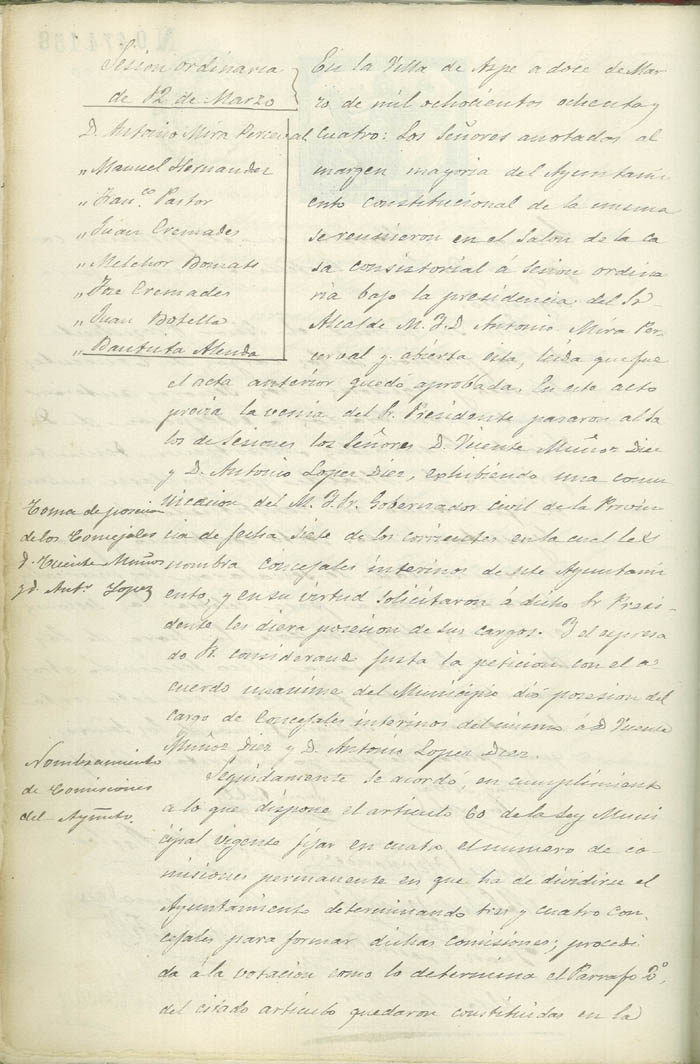 Sesion ordinaria
de 12 de Marzo
D. Antonio Mira Perceval
,, Manuel Hernandez
,, Fran.co Pastor
,, Juan Cremades
,, Melchor Bonati
,, Jose Cremades
,, Juan Botella
,, Bautista Alenda
En la Villa de Aspe a doce de Mar-
zo de mil ochocientos ochenta y
cuatro: Los Señores anotados al
margen mayoria del Ayuntami-
ento constitucional de la misma
se reunieron en el Salon de la ca
sa consistorial á sesion ordina
ria bajo la presidencia del Sr
Alcalde M. Y. D. Antonio Mira Per-
ceval y abierta esta, leida que fue
el acta anterior quedó aprobada. En este acto
previa la venia del Sr. Presidente pasaron al Sa
lo de Sesiones los Señores D. Vicente Muñoz Diez
y D. Antonio Lopez Diez, exhibiendo una comu
nicacion del M. Y. Sr. Gobernador Civil de la Provin
Toma de posesion
de los Concejales
D. Vicente Muñoz
y D. Ant.o Lopez
cia de fecha siete de los corrientes en la cual les
nombra concejales interinos de este Ayuntami
ento, y en su virtud solicitaron á dicho Sr Presi-
dente les diera posesion de sus cargos. Y el espresa
do Sr. considerando justa la peticion con el a-
cuerdo unanime del Municipio dió posesion del
cargo de Concejales interinos del mismo á D. Vicente
Muñoz Diez y D. Antonio Lopez Diez.
Nombramiento
de Comisiones
del Ayunto.
Seguidamente se acordó, en cumplimiento
a lo que dispone el articulo 60 de la Ley Muni
cipal vigente fijar en cuatro el numero de co-
misiones permanente en que ha de dividirse el
Ayuntamiento determinando tres y cuatro con-
cejales para formar dichas comisiones; procedi
da á la votacion como lo determina el Parrafo 2º,
del citado articulo quedaron constituidas en la